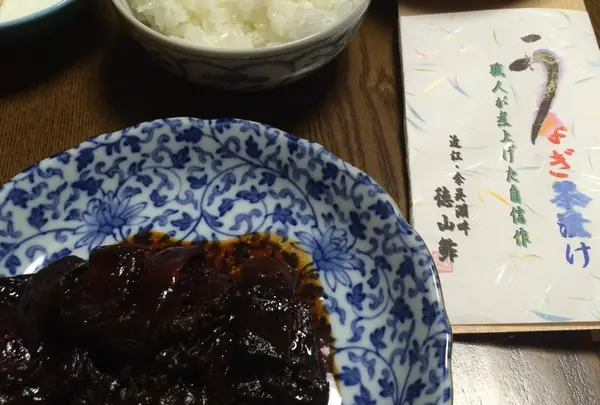 うなぎ茶漬け
職人が煮上げた自信作
近江・余呉湖畔
徳山鮓